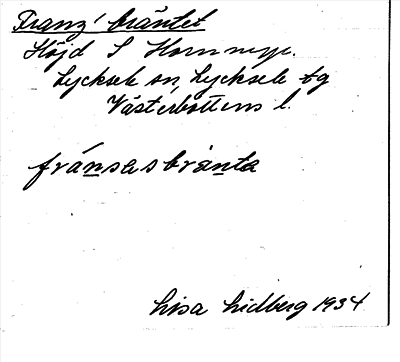 Franz' bräntet
Höjd S Hornmyr.
Lycksele sn, Lycksele tg
Västerbottens l.
fránsasbrànta
Lisa Lidberg 1934